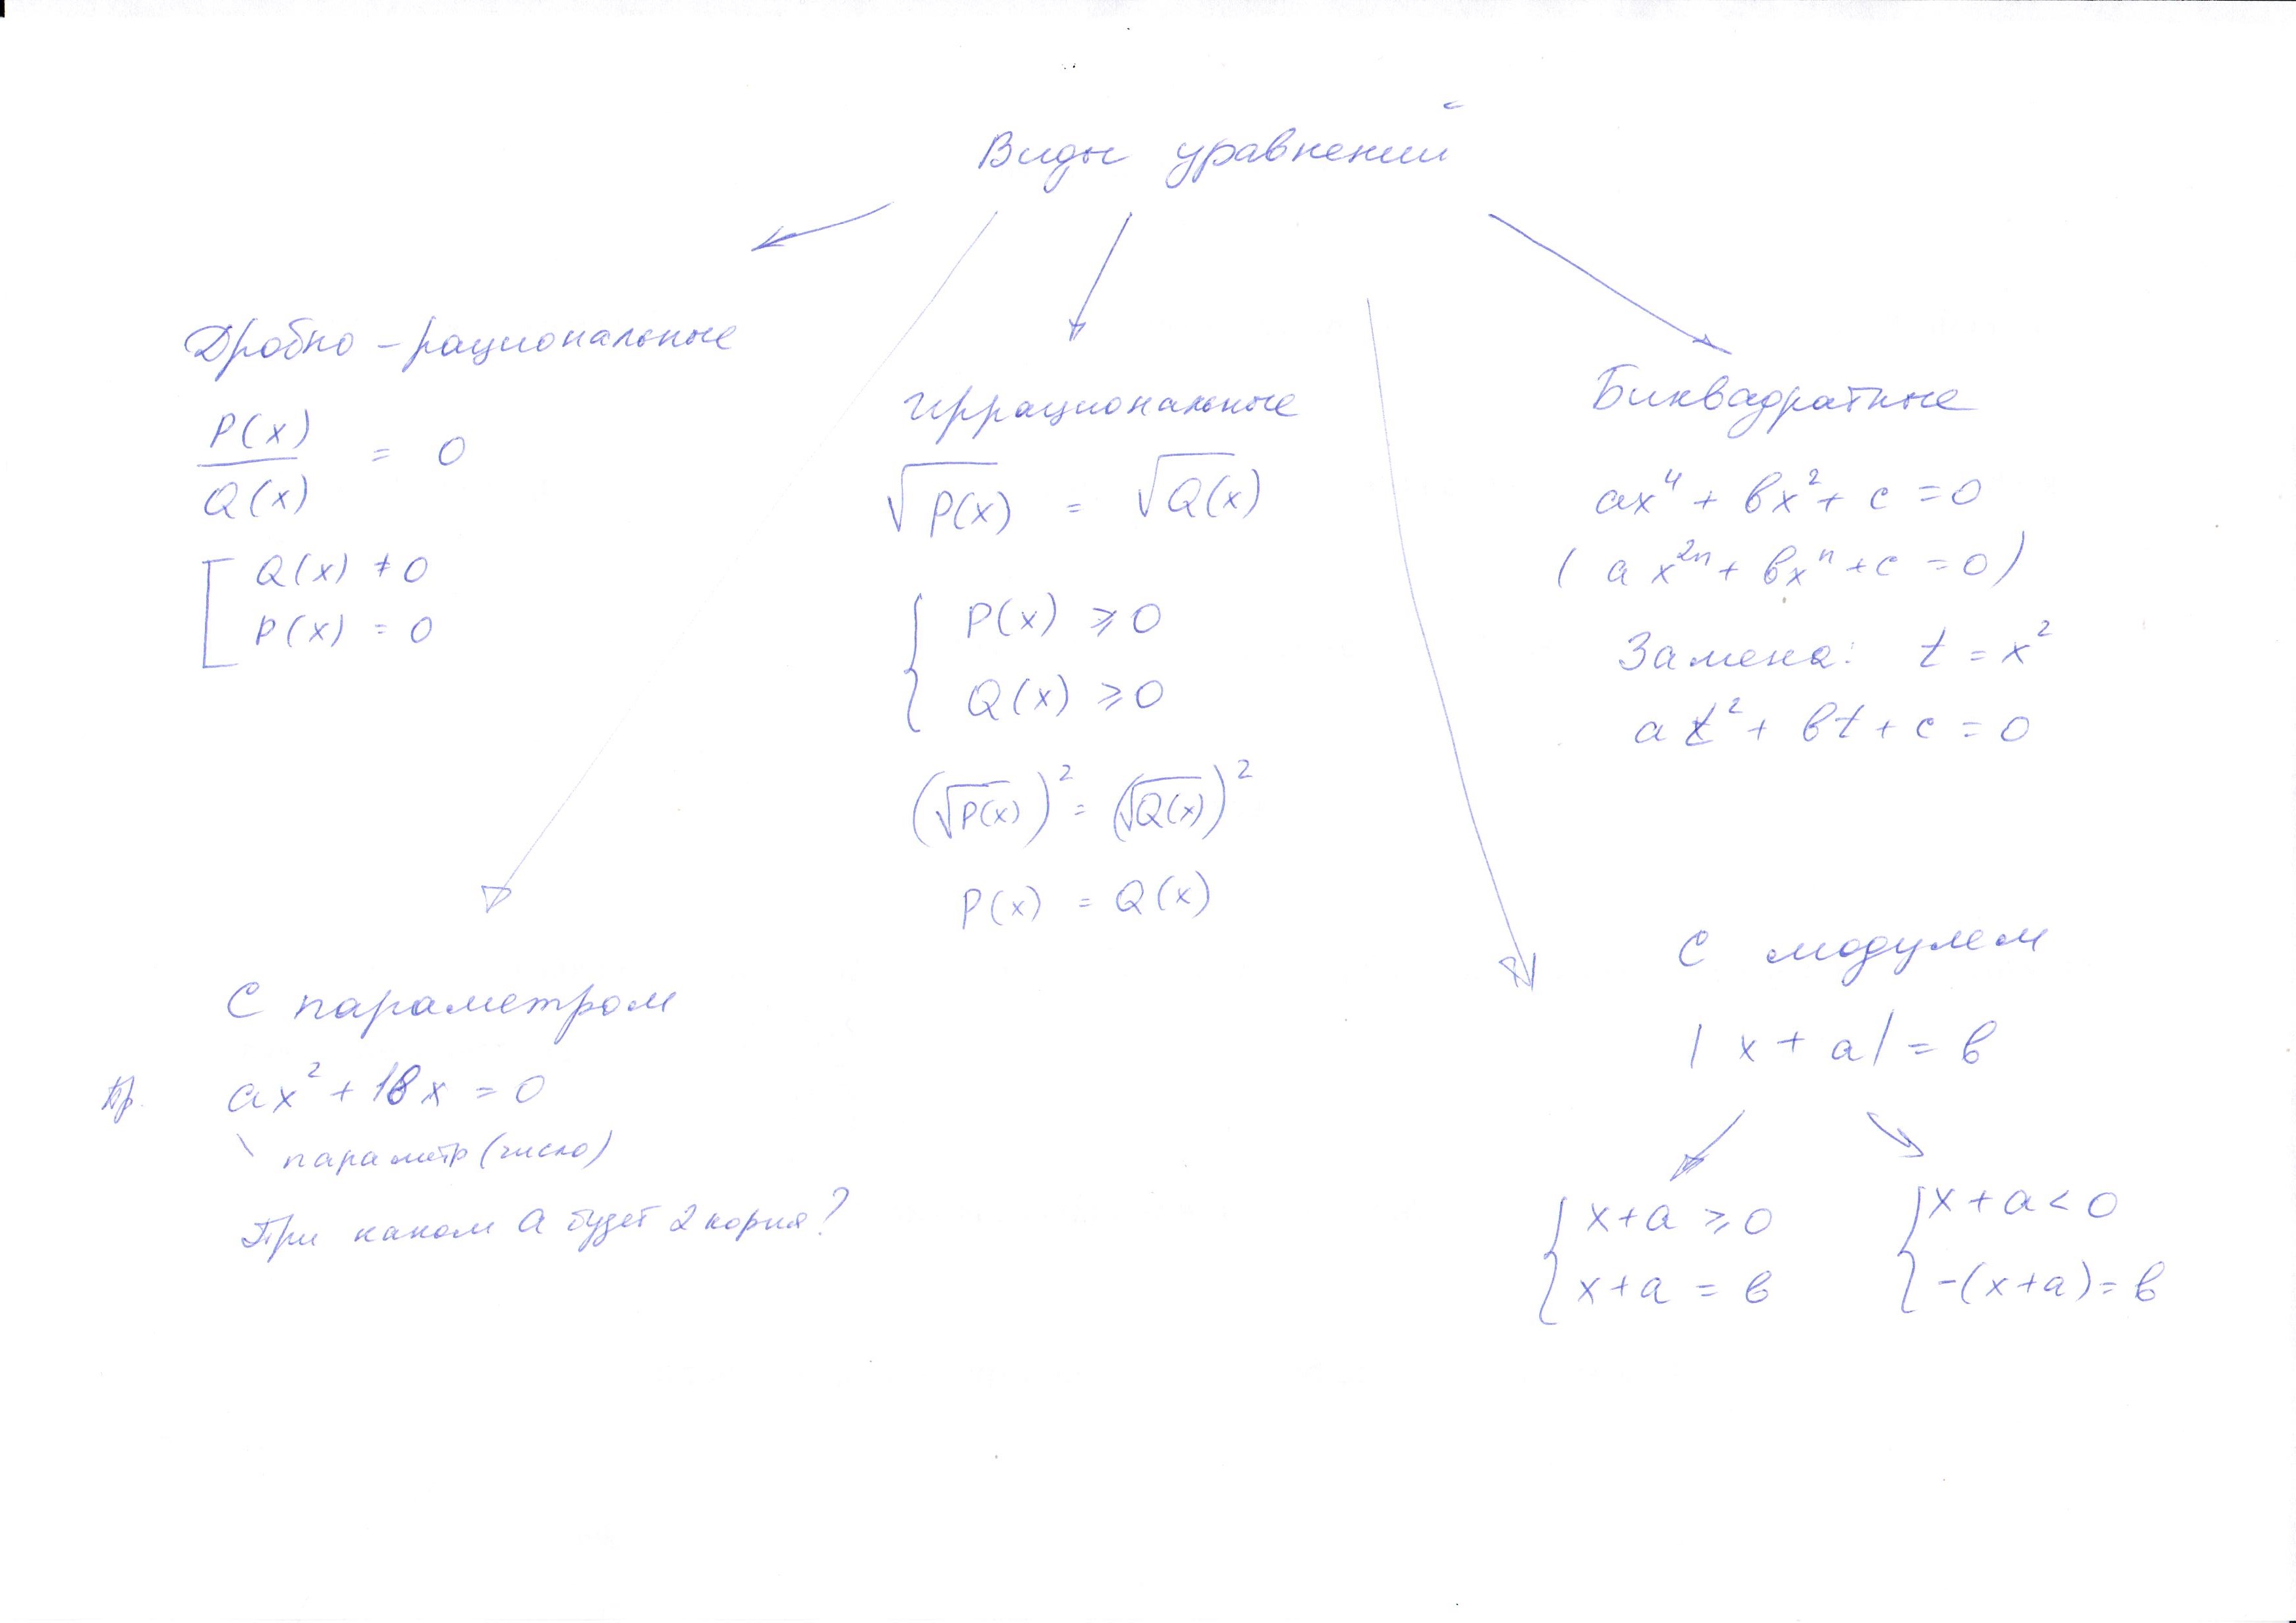 Виды уравнений
Дробно - рациональные
P(x)
Q(x)
= 0
Q(x) ≠ 0
P(x) = 0
Иррациональные
√P(x) = √Q(x)
P(x) ⩾ 0
Q(x) ⩾ 0
(√P(x))² = (√Q(x))²
P(x) = Q(x)
Биквадратные
ax⁴ + вx² + c = 0
( a x²ⁿ + вxⁿ + c = 0)
Замена: t = x²
at² + вt + c = 0
С параметром
Пр. ax² + 18x = 0
параметр (число)
При каком а будет 2 корня?
С модулем
| x + a | = в
x + a ⩾ 0
x + a = в
x + a < 0
-(x + a) = в